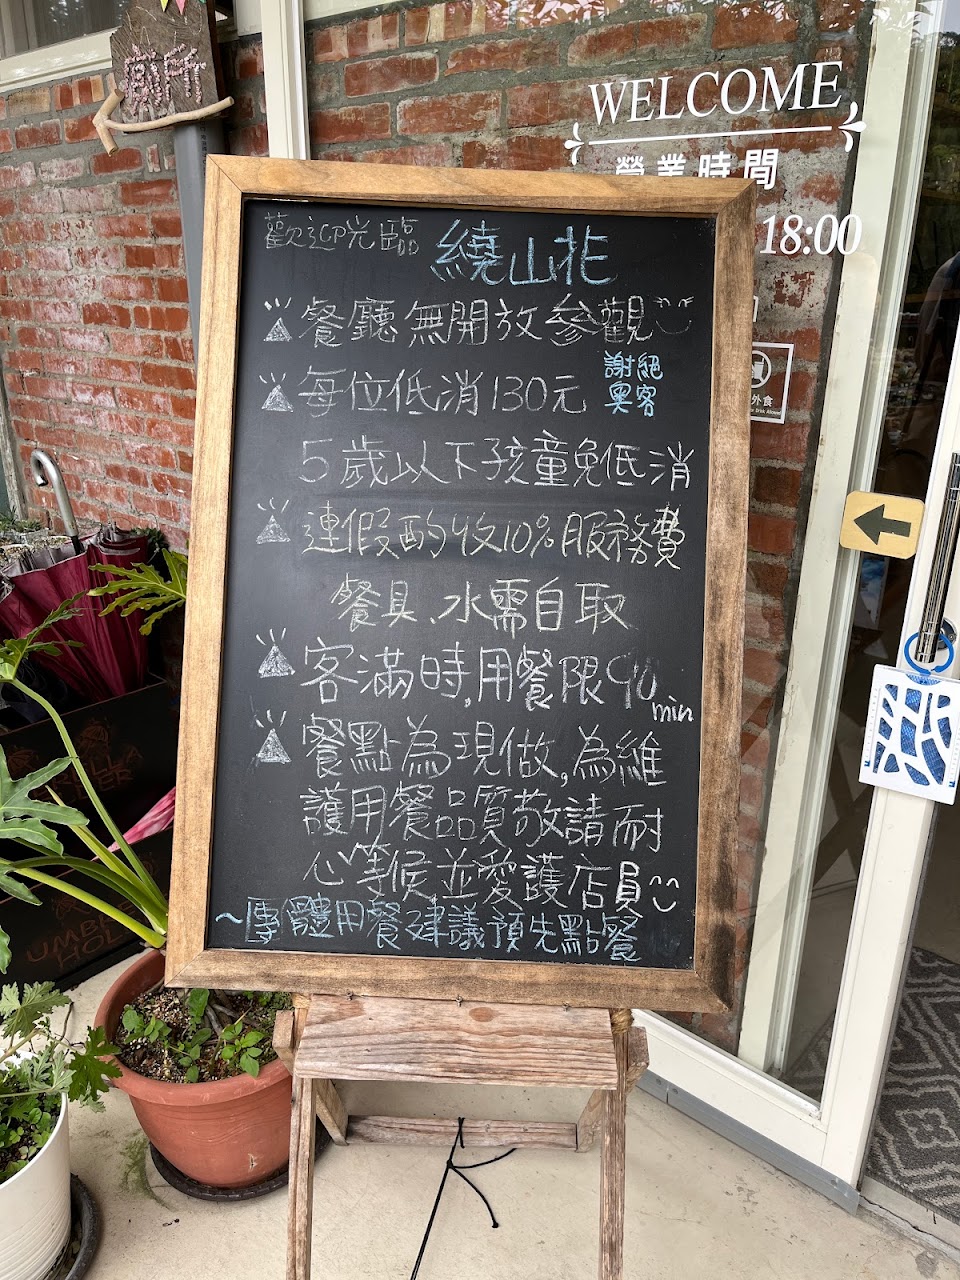 WELCOME
營業時間
18:00
外食
歡迎光臨 繞山花
餐廳無開放參觀
謝絕
奧客
每位低消130元
5歲以下孩童免低消
連假酌收10%服務費
餐具、水需自取
客滿時,用餐限90min
餐點為現做,為維
護用餐品質敬請耐
心等候並愛護店員
~團體用餐建議預先點餐